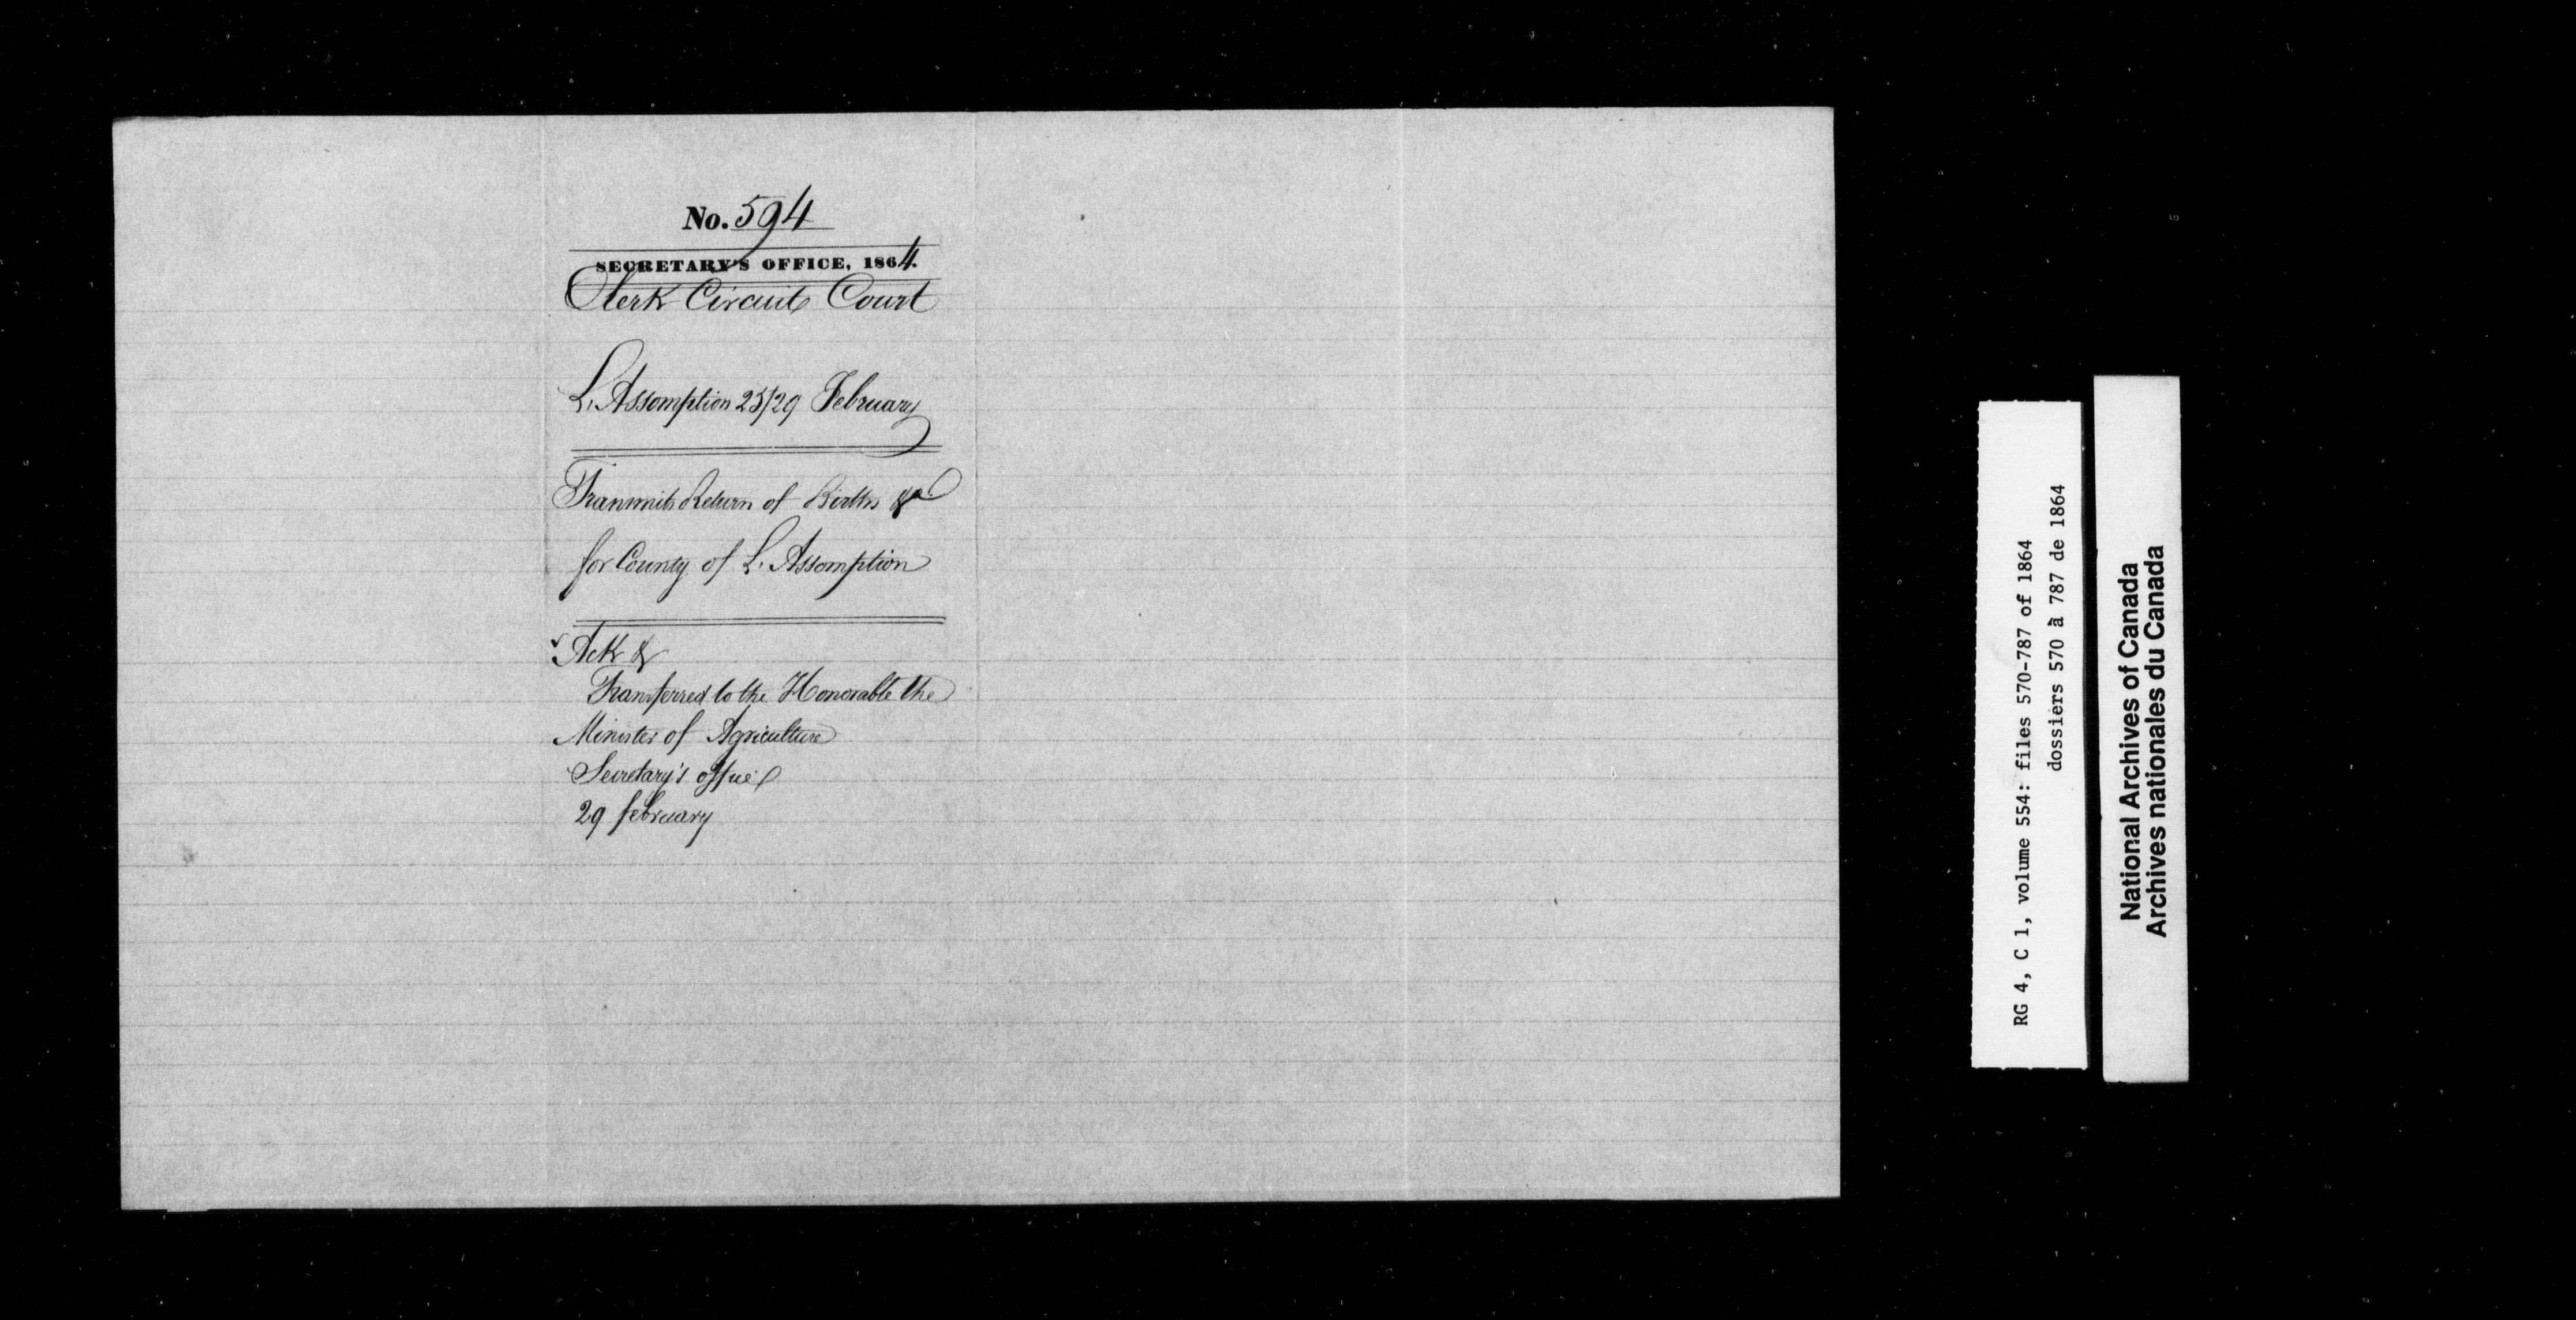 No. 594
SECRETARY'S OFFICE, 1864.
Clerk Circuit Court
L'Assomption 25/29 February
Transmits Return of Births &a
for County of L'Assomption
Ack &
Transferred to the Honorable the
Minister of Agriculture
Secretary's office
29 february
RG 4, C 1, volume 554: files 570-787 of 1864
dossiers 570 à 787 de 1864
National Archives of Canada
Archives nationales du Canada